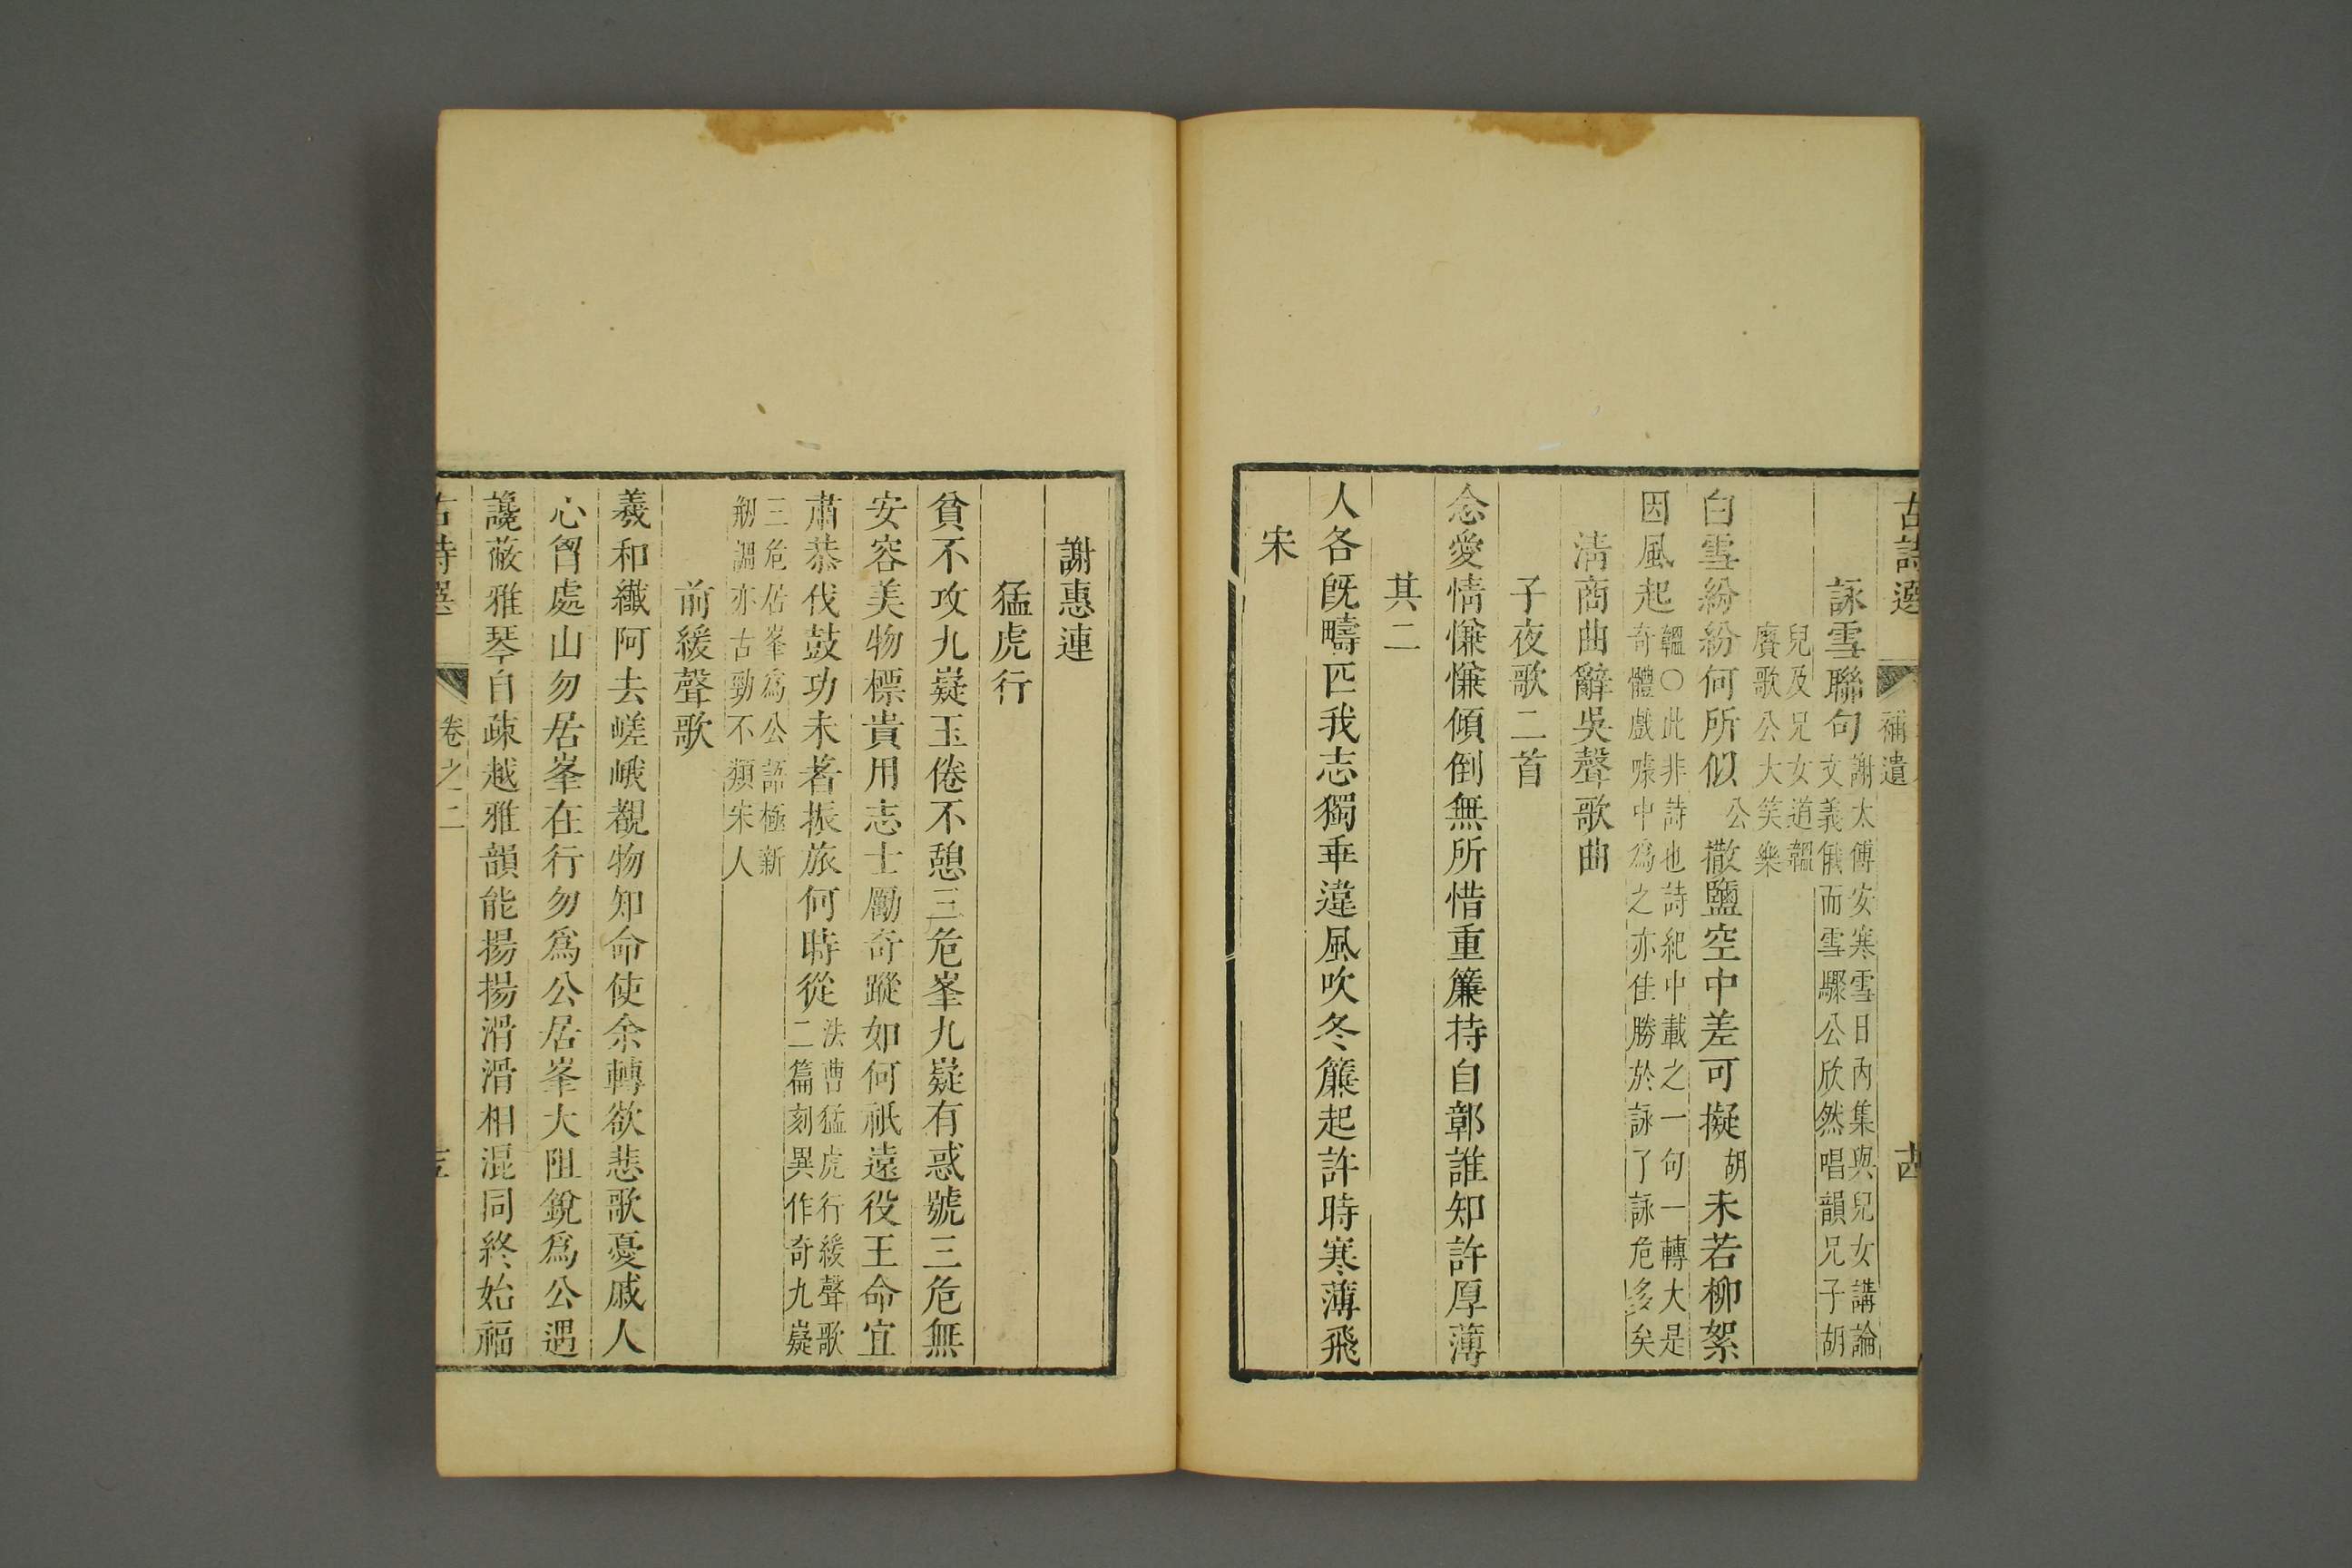 古詩選
補遺
詠雪聯句
謝太傅安寒雪日內集與兒女講論
文義俄而雪驟公欣然唱韻兄子胡
兒及兄女道韞
賡歌公大笑樂
白雪紛紛何所似公撒鹽空中差可擬胡未若柳絮
因風起
韞○此非詩也詩紀中載之一句一轉大是
奇體戲喙中為之亦佳勝於詠了詠危多矣
清商曲辭吳聲歌曲
子夜歌二首
念愛情慊慊傾倒無所惜重簾持自鄣誰知許厚薄
其二
人各旣疇匹我志獨乖違風吹冬簾起許時寒薄飛
宋
謝惠連
猛虎行
貧不攻九嶷玉倦不憩三危峯九嶷有惑號三危無
安容美物標貴用志士勵奇蹤如何祇遠役王命宜
肅恭伐鼓功未著振旅何時從
法曹猛虎行緩聲歌
二篇刻異作奇九嶷
三危居峯為公語極新
剏調亦古勁不類宋人
前緩聲歌
羲和纖阿去嵯峨覩物知命使余轉欲悲歌憂戚人
心胷處山勿居峯在行勿爲公居峯大阻銳爲公遇
讒蔽雅琴自疎越雅韻能揚揚滑滑相混同終始福
古詩選
卷之二